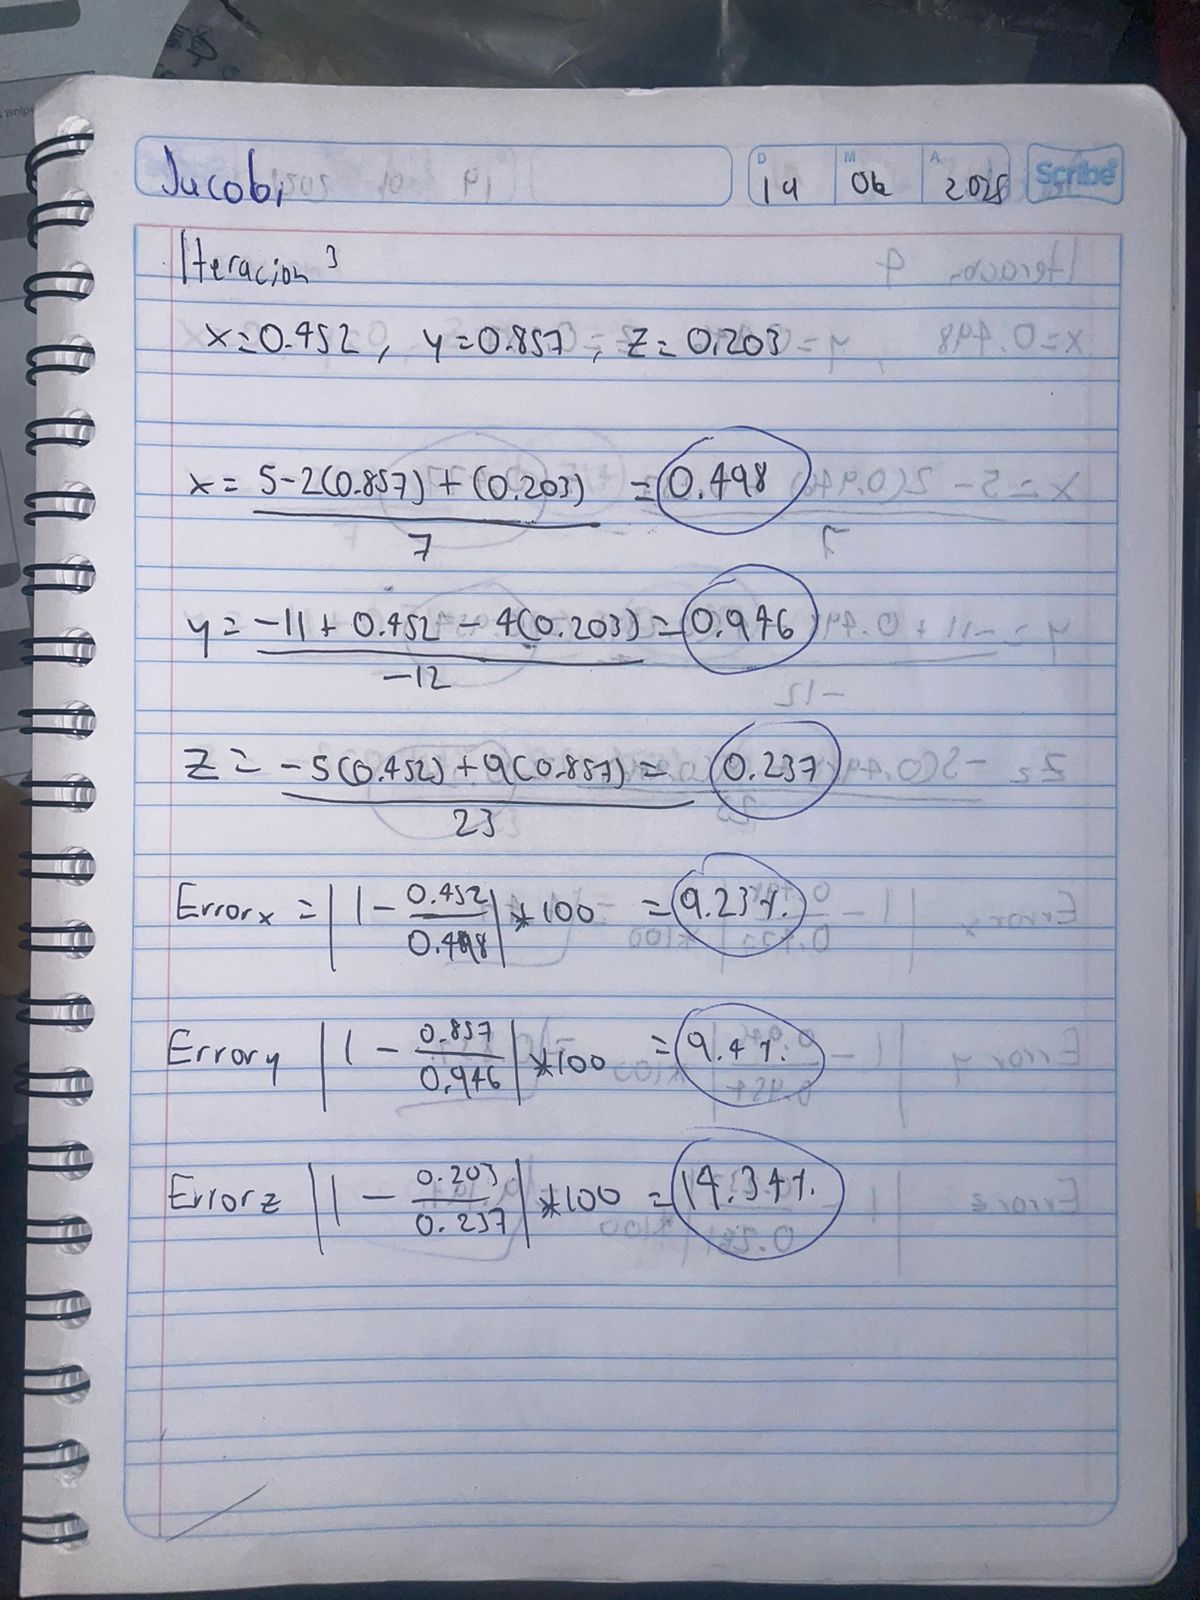 Jacobi
D 14 M 06 A 2025 Scribe
Iteracion 3
x=0.452, y=0.857, z=0.203
x= 5-2(0.857)+(0.203) =0.498
7
y= -11+0.452-4(0.203)=0.946
-12
z= -5(0.452)+9(0.857)= 0.237
23
Errorx = |1-0.452/0.498|*100 =9.23%
Errory |1-0.857/0.946|*100 =9.4%
Errorz |1-0.203/0.237|*100 =14.34%